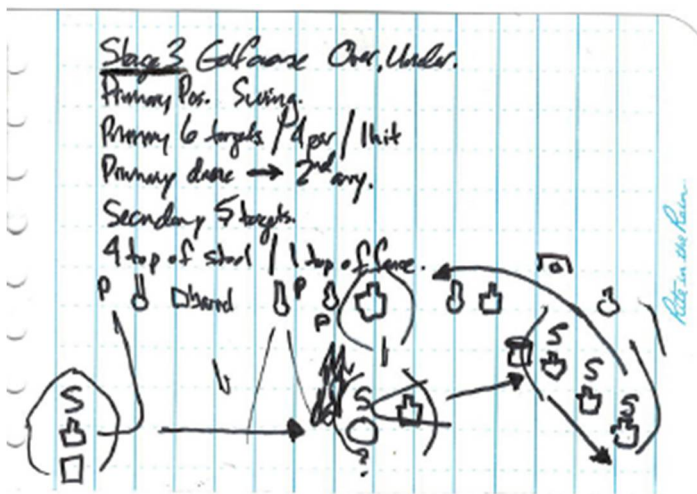 Stage 3 Golf course Over, Under.
Primary Pos. Swing.
Primary 6 targets / 4 par / 1 hit
Primary done → 2nd ary.
Secondary 5 targets.
4 top of stool / 1 top of fence.
P barrel P
P
S
S
?
S
S
S
Rite in the Rain